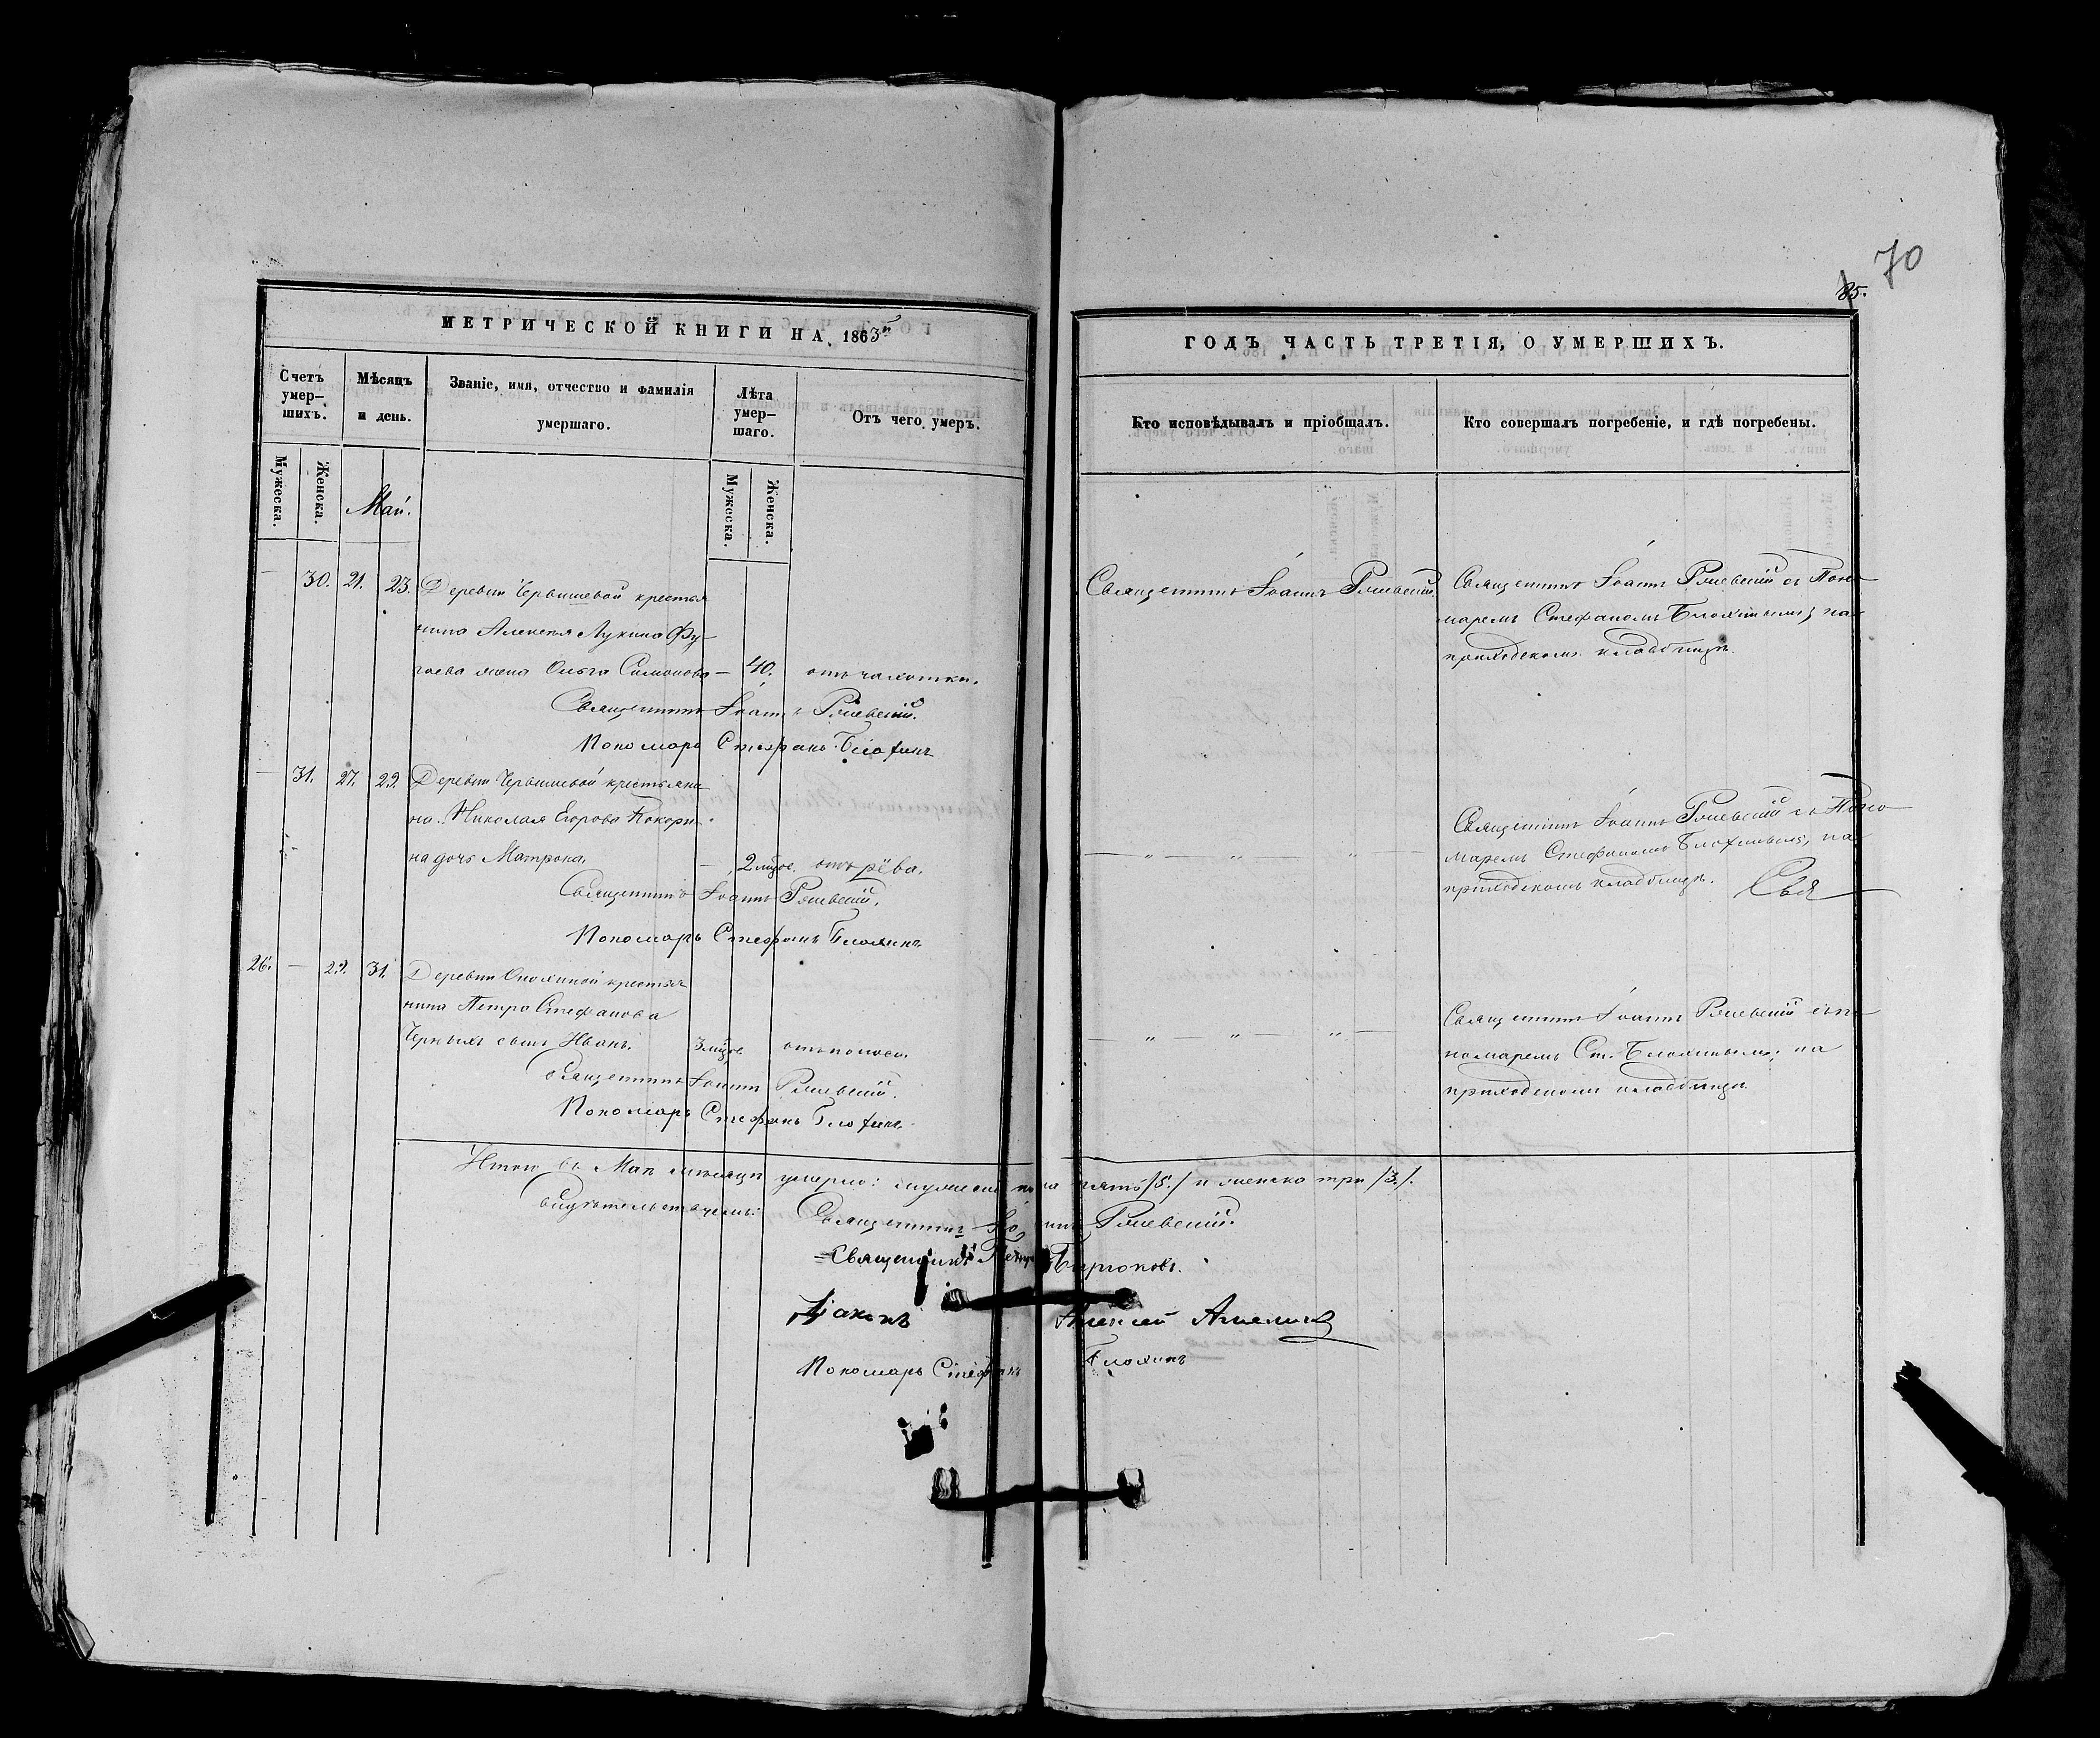 70
85.
МЕТРИЧЕСКОЙ КНИГИ НА 1863й
ГОДЪ ЧАСТЬ ТРЕТІЯ, О УМЕРШИХЪ.
Счетъ умер-шихъ.
Мѣсяцъ и день.
Званіе, имя, отчество и фамилія умершаго.
Лѣта умер-шаго.
Отъ чего умеръ.
Кто исповѣдывалъ и пріобщалъ.
Кто совершалъ погребеніе, и гдѣ погребены.
Мужеска.
Женска.
Май.
Мужеска.
Женска.
— 30. 21. 23. Деревни Чернышевой крестья
нина Алексѣя Лукина Фу-
гаева жена Ольга Симонова — 40. отъ чахотки.
Священникъ Іоаннъ
Пономарь Стефанъ Блохинъ
Священникъ Іоаннъ
Священникъ Іоаннъ съ Поно-
маремъ Стефаномъ Блохинымъ, на
приходскомъ кладбищѣ.
— 31. 27. 29. Деревни Чернышевой крестьяни
на Николая Егорова Кокори-
на дочь Матрона. — 2 мѣс. отъ рёва.
Священникъ Іоаннъ
Пономарь Стефанъ Блохинъ
— „ — „ — „ —
Священникъ Іоаннъ съ Поно-
маремъ Стефаномъ Блохинымъ, на
приходскомъ кладбищѣ.
26. — 29. 31. Деревни крестья
нина Петра Стефанова
Черныхъ сынъ Иванъ. 3 мѣс. отъ поноса.
Священникъ Іоаннъ
Пономарь Стефанъ Блохинъ.
— „ — „ — „ —
Священникъ Іоаннъ съ по
номаремъ Ст. Блохинымъ; на
приходскомъ кладбищѣ.
Итого въ Маѣ мѣсяцѣ умерло: мужеска пола пять /5./ и женска три /3./.
Священникъ Іоаннъ
Священникъ Петръ Бирюковъ.
Діаконъ Алексѣй
Пономарь Стефанъ Блохинъ